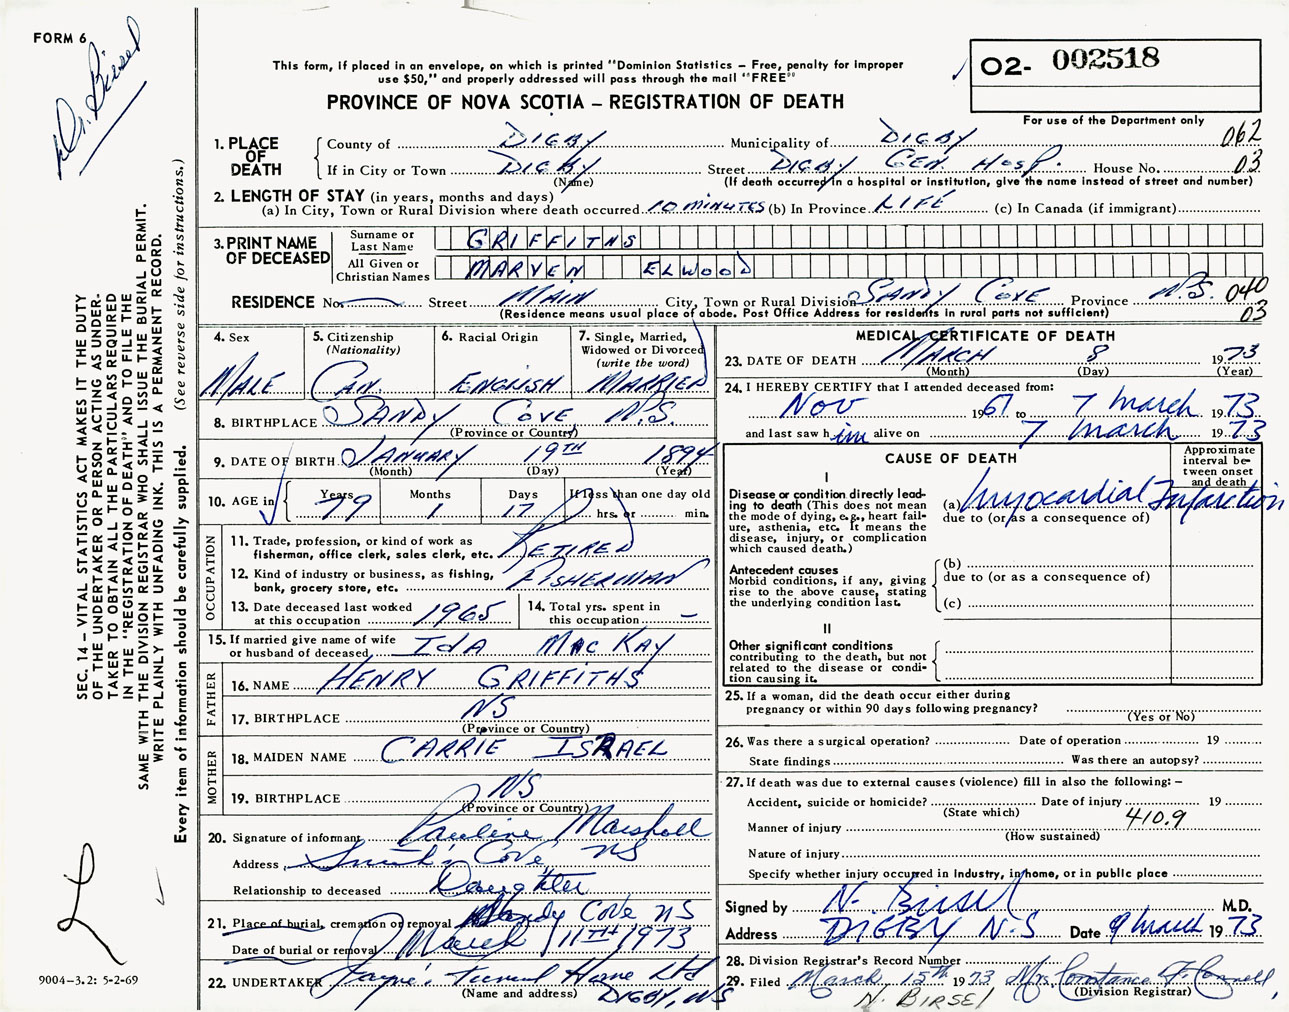 FORM 6
Dr. Birsel
This form, if placed in an envelope, on which is printed "Dominion Statistics – Free, penalty for improper
use $50," and properly addressed will pass through the mail "FREE"
PROVINCE OF NOVA SCOTIA – REGISTRATION OF DEATH
O2- 002518
For use of the Department only
1. PLACE OF DEATH County of DIGBY Municipality of DIGBY 062
If in City or Town DIGBY Street DIGBY GEN. HOSP. House No. 03
(Name) (If death occurred in a hospital or institution, give the name instead of street and number)
2. LENGTH OF STAY (in years, months and days)
(a) In City, Town or Rural Division where death occurred 10 MINUTES (b) In Province LIFE (c) In Canada (if immigrant)
3. PRINT NAME OF DECEASED
Surname or Last Name GRIFFITHS
All Given or Christian Names MARVEN ELWOOD
RESIDENCE No. Street MAIN City, Town or Rural Division SANDY COVE Province N.S. 040
(Residence means usual place of abode. Post Office Address for residents in rural parts not sufficient) 03
4. Sex MALE
5. Citizenship (Nationality) CAN.
6. Racial Origin ENGLISH
7. Single, Married, Widowed or Divorced (write the word) MARRIED
8. BIRTHPLACE SANDY COVE N.S.
(Province or Country)
9. DATE OF BIRTH JANUARY 19TH 1894
(Month) (Day) (Year)
10. AGE in Years 79 Months 1 Days 17 If less than one day old hrs. or min.
OCCUPATION
11. Trade, profession, or kind of work as
fisherman, office clerk, sales clerk, etc. RETIRED
12. Kind of industry or business, as fishing,
bank, grocery store, etc. FISHERMAN
13. Date deceased last worked
at this occupation 1965
14. Total yrs. spent in
this occupation –
15. If married give name of wife
or husband of deceased IDA MACKAY
FATHER
16. NAME HENRY GRIFFITHS
17. BIRTHPLACE NS
(Province or Country)
MOTHER
18. MAIDEN NAME CARRIE ISRAEL
19. BIRTHPLACE NS
(Province or Country)
20. Signature of informant Pauline Marshall
Address Smith's Cove NS
Relationship to deceased Daughter
21. Place of burial, cremation or removal Sandy Cove NS
Date of burial or removal March 11TH 1973
22. UNDERTAKER Jayne's Funeral Home Ltd
(Name and address) DIGBY, NS
MEDICAL CERTIFICATE OF DEATH
23. DATE OF DEATH MARCH 8 1973
(Month) (Day) (Year)
24. I HEREBY CERTIFY that I attended deceased from:
Nov 1961 to 7 March 1973
and last saw him alive on 7 March 1973
CAUSE OF DEATH
Approximate interval between onset and death
I
Disease or condition directly leading to death (This does not mean the mode of dying, e.g., heart failure, asthenia, etc. It means the disease, injury, or complication which caused death.)
(a) Myocardial Infarction
due to (or as a consequence of)
Antecedent causes
Morbid conditions, if any, giving rise to the above cause, stating the underlying condition last.
(b)
due to (or as a consequence of)
(c)
II
Other significant conditions
contributing to the death, but not related to the disease or condition causing it.
25. If a woman, did the death occur either during
pregnancy or within 90 days following pregnancy?
(Yes or No)
26. Was there a surgical operation? Date of operation 19
State findings Was there an autopsy?
27. If death was due to external causes (violence) fill in also the following: –
Accident, suicide or homicide? Date of injury 19
(State which) 410.9
Manner of injury
(How sustained)
Nature of injury
Specify whether injury occurred in Industry, in home, or in public place
Signed by N. Birsel M.D.
Address DIGBY N.S Date 9 March 1973
28. Division Registrar's Record Number
29. Filed March 15th 1973 Mrs. Constance F. Connell
N. BIRSEL (Division Registrar)
SEC. 14 – VITAL STATISTICS ACT MAKES IT THE DUTY
OF THE UNDERTAKER OR PERSON ACTING AS UNDER-
TAKER TO OBTAIN ALL THE PARTICULARS REQUIRED
IN THE "REGISTRATION OF DEATH" AND TO FILE THE
SAME WITH THE DIVISION REGISTRAR WHO SHALL ISSUE THE BURIAL PERMIT.
WRITE PLAINLY WITH UNFADING INK. THIS IS A PERMANENT RECORD.
Every item of information should be carefully supplied. (See reverse side for instructions.)
9004-3.2: 5-2-69